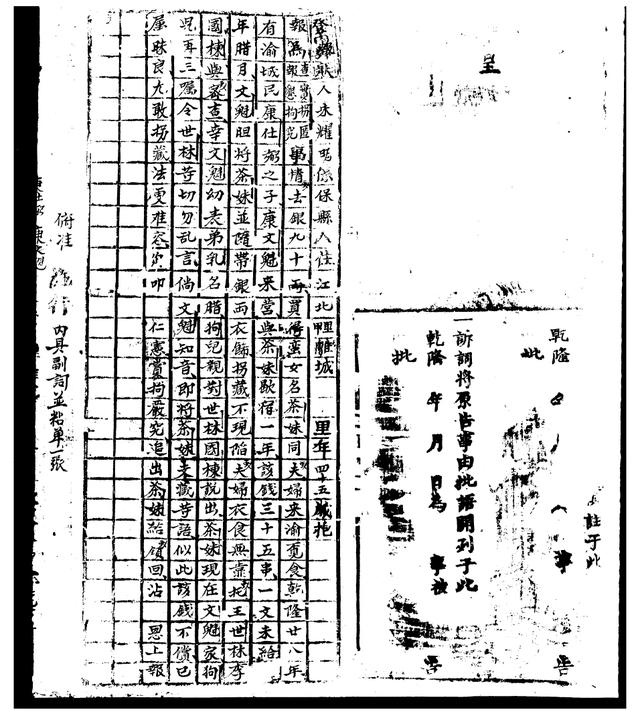 呈
註于此
乾隆
批
一訴詞將原告事由批語開列于此
乾隆 年 月 日為 事被 告
批
報狀人未耀明係保縣人住江北理離城 里年四十五歲抱
報為查實拐匿報懇拘究事情去銀九十兩買得蛮女名茶妹同夫婦來渝覓食乾隆廿八年
有渝城民康仕弼之子康文魁來當與茶妹歇宿一年該錢三十五串一文未給
年腊月文魁胆將茶妹並隨帶銀兩衣飾拐藏不現陷夫婦衣食無靠托王世林李
國棟與密查幸文魁幼表弟乳名腊狗兒親對世林國棟說出茶妹現在文魁家狗
児再三嘱令世林等切勿乱言倘文魁知音即將茶妹支藏等語似此該錢不償已
屬昧良尤敢拐藏法更难容叩 仁憲賞拘嚴究追出茶妹給領回沾 恩上報
俯准
施行 內具副詞並粘单一張